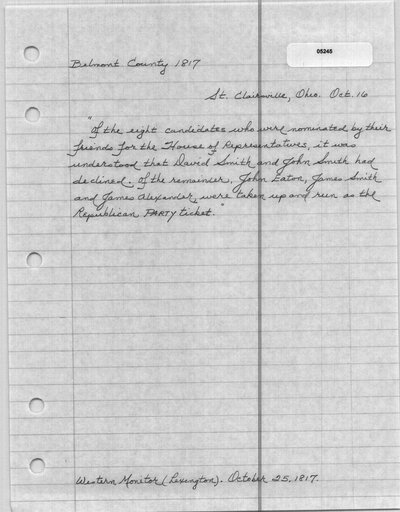 05245
Belmont County 1817
St. Clairsville, Ohio. Oct. 16
"Of the eight candidates who were nominated by their
friends for the House of Representatives, it was
understood that David Smith and John Smith had
declined. Of the remainder, John Eaton, James Smith
and James Alexander were taken up and run as the
Republican PARTY ticket."
Western Monitor (Lexington). October 25, 1817.